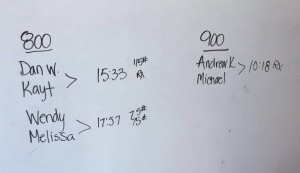 800
Dan W.
Kayt
15:33
115#
RX
Wendy
Melissa
17:57
75#
75#
900
Andrew K
Michael
10:18 Rx